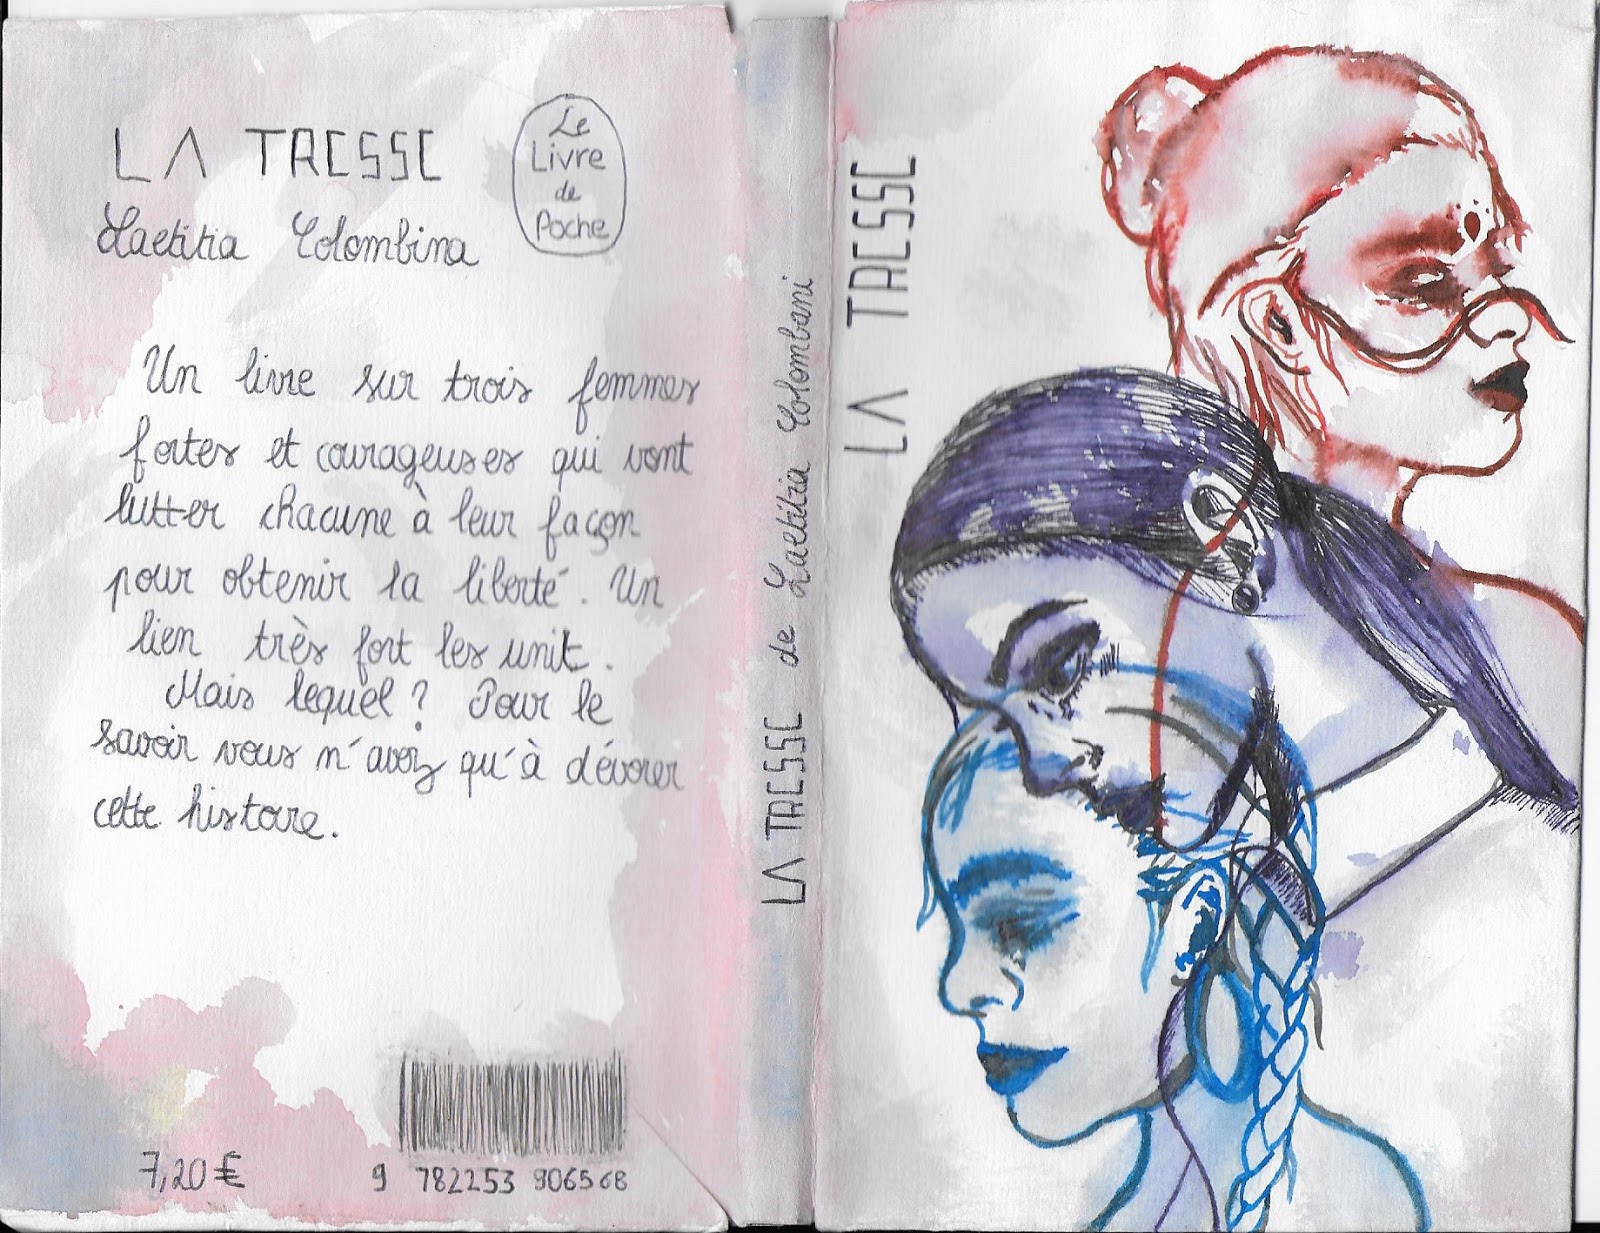 LA TRESSE
Laetitia Colombina
Le
Livre
de
Poche
Un livre sur trois femmes
fortes et courageuses qui vont
lutter chacune à leur façon
pour obtenir la liberté. Un
lien très fort les unit.
Mais lequel ? Pour le
savoir vous n'avez qu'à dévorer
cette histoire.
7,20 €
9 782253 906568
LA TRESSE de Laetitia Colombani
LA TRESSE